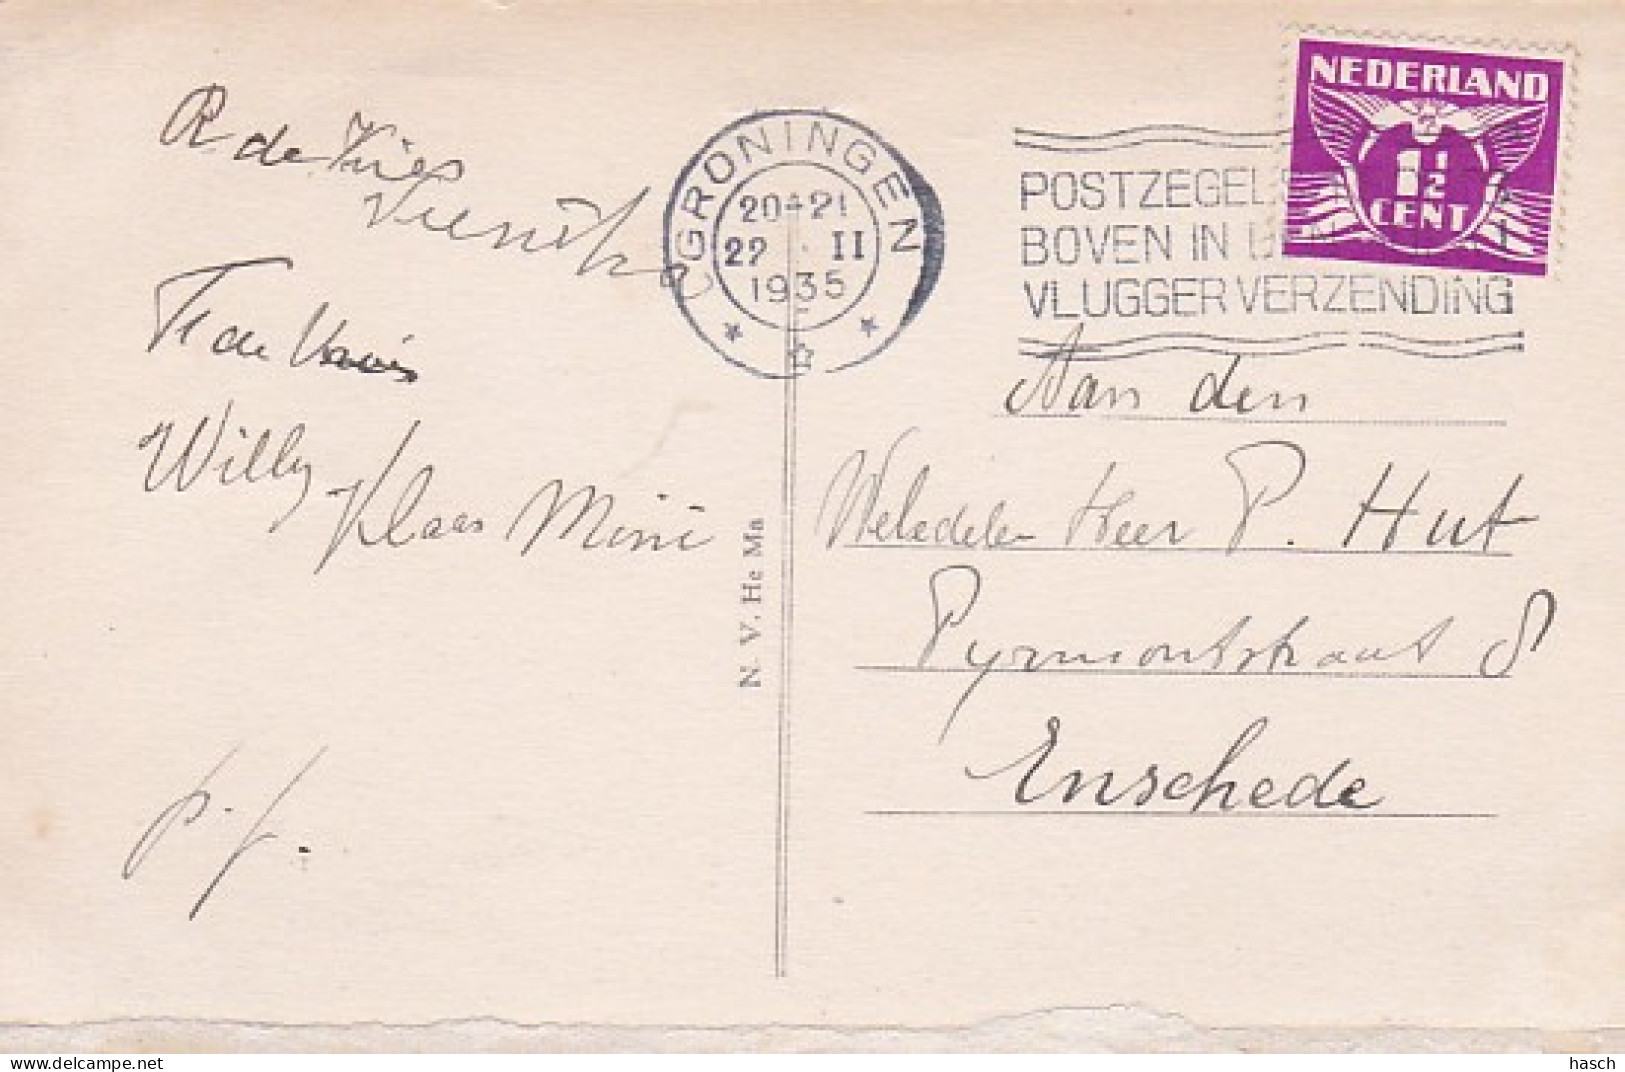 R de Vries
F de Vries
Willy Klaas Mini
p.f.
GRONINGEN
20-21
22 II
1935
POSTZEGELS
BOVEN IN DEN
VLUGGER VERZENDING
NEDERLAND
1½
CENT
N. V. He Ma
Aan den
Weledelen Heer P. Hut
Pyrmontstraat 8
Enschede
hasch
www.delcampe.net